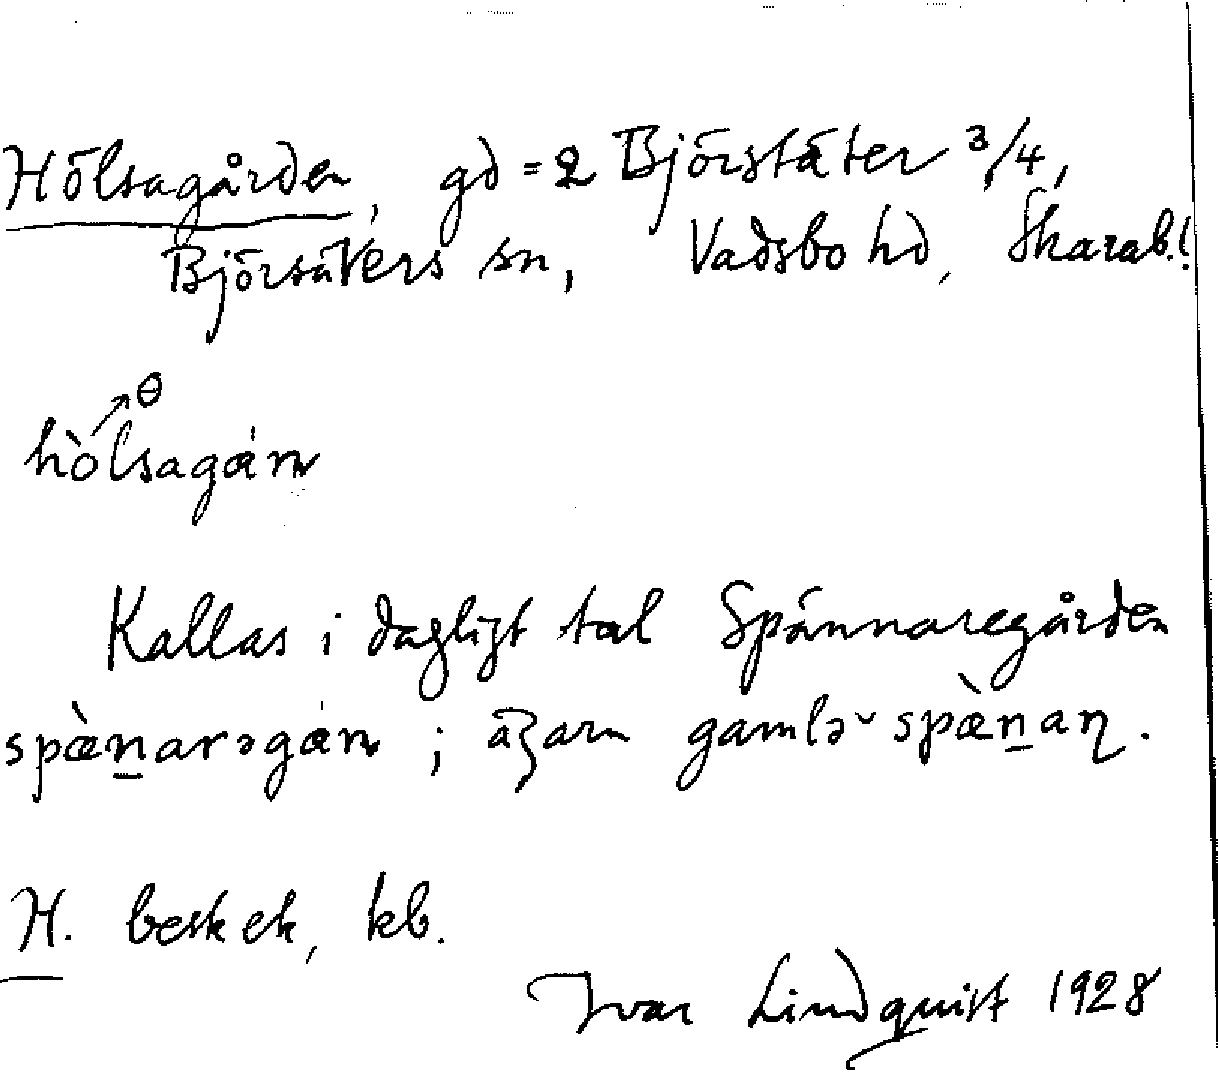 Hölsagården, gd = 2 Björstäter 3/4,
Björsäters sn, Vadsbo hd, Skarab.l.
ɵ
hòlsagán
Kallas i dagligt tal Spännaregården
spæ̀n̲arəgán ; äɼarn gamlə˘ spæ̀n̲aɳ.
H. besk ek, kb.
Ivar Lindquist 1928